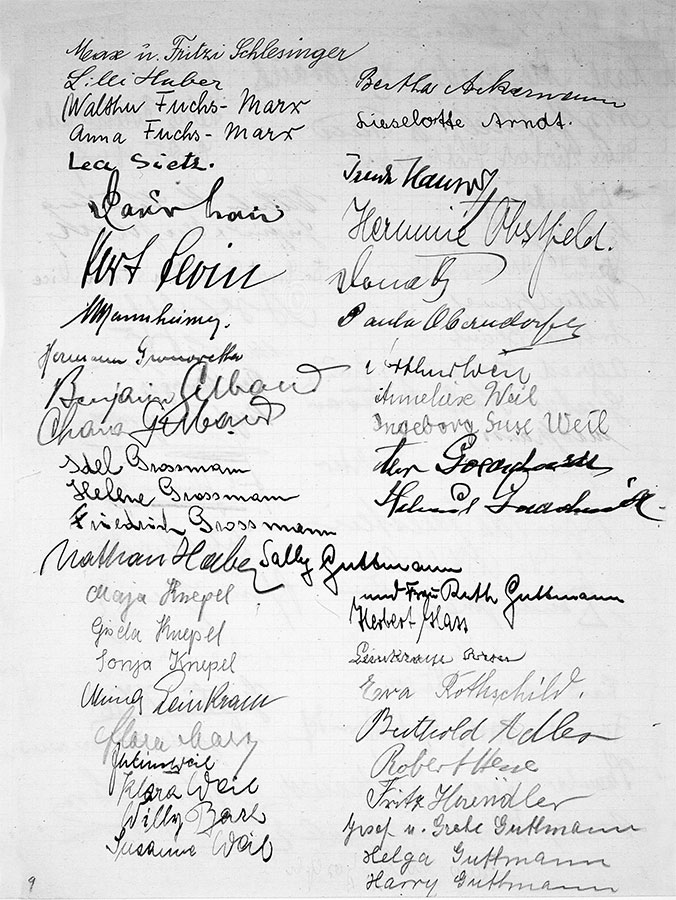 Max u. Fritzi Schlesinger
Lilli Huber
Walther Fuchs-Marx
Anna Fuchs-Marx
Lea Sietz.
Kurt Levin
Mannheimer.
Hermann
Benjamin
Chana
Idel Grossmann
Helene Grossmann
Friedrich Grossmann
Nathan Haber
Maja Knepel
Gisela Knepel
Sonja Knepel
Mina Leinkram
Flora Marx
Julius Weil
Klara Weil
Willy Baer
Susanne Weil
9
Bertha Ackermann
Lieselotte Arndt.
Hermine Obstfeld.
Donath
Paula Oberndorfer
Arthur Weil
Anneliese Weil
Ingeborg Suse Weil
Sally Guttmann
und Frau Ruth Guttmann
Herbert Glass
Leinkram
Eva Rothschild.
Berthold Adler
Robert Hess
Fritz Haendler
Josef u. Grete Guttmann
Helga Guttmann
Harry Guttmann